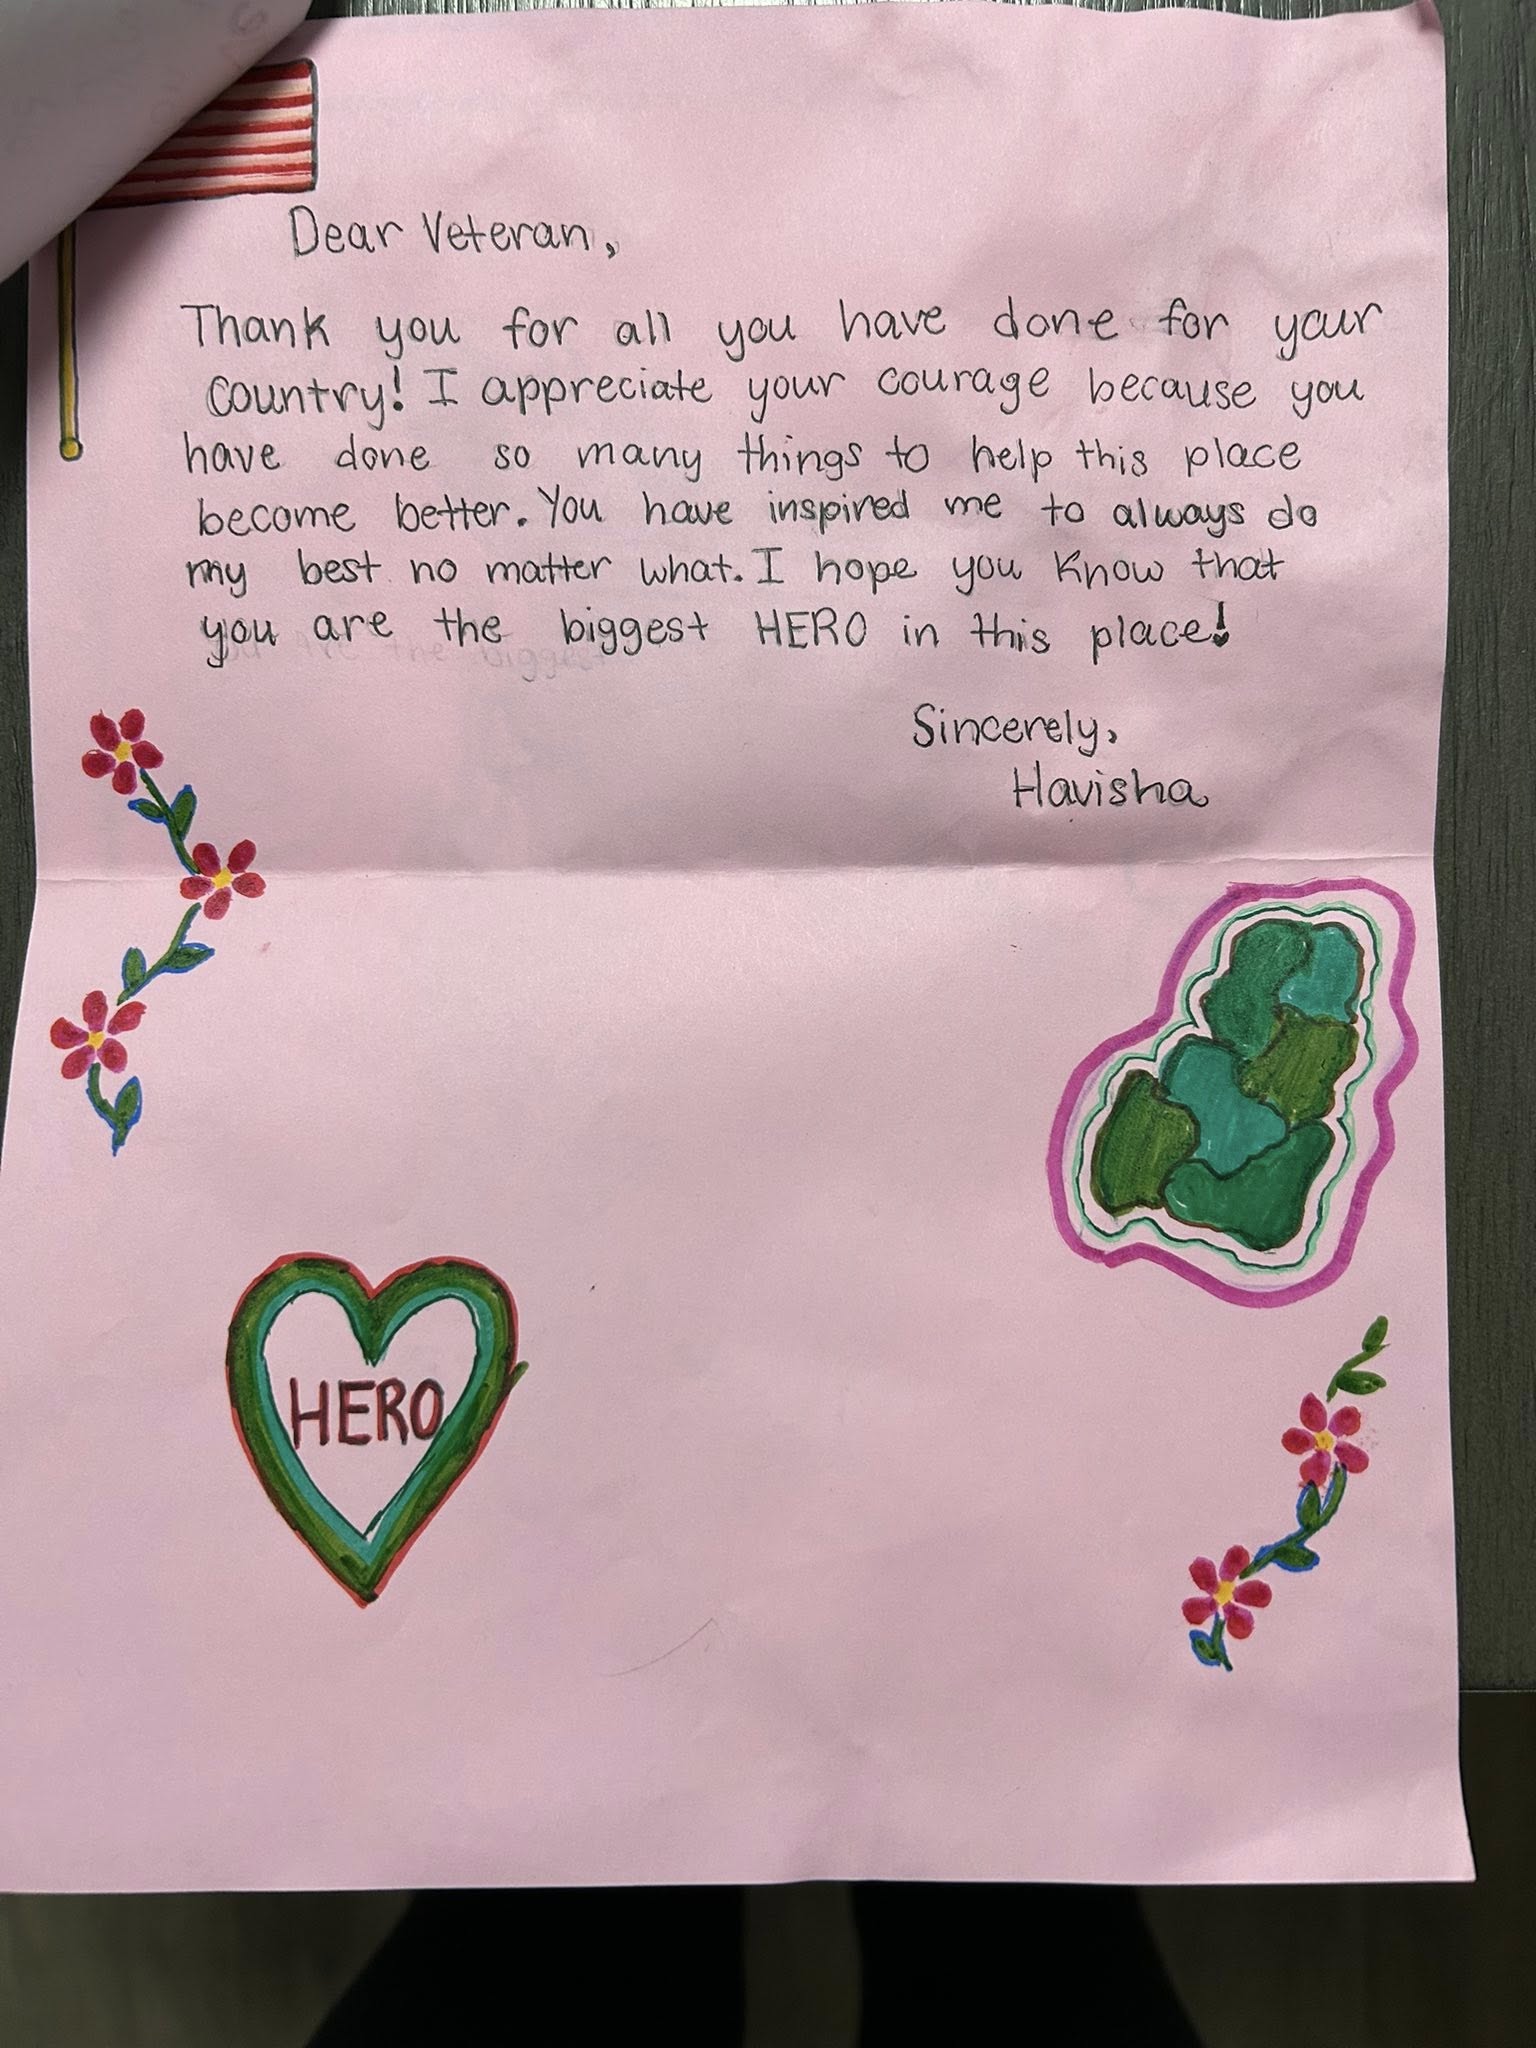 Dear Veteran,
Thank you for all you have done for your
country! I appreciate your courage because you
have done so many things to help this place
become better. You have inspired me to always do
my best no matter what. I hope you know that
you are the biggest HERO in this place!
Sincerely,
Havisha
HERO